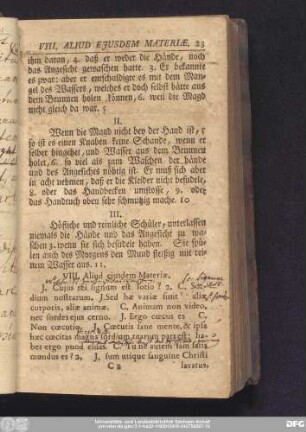 VIII. ALIUD EJUSDEM MATERIÆ. 23
ihm daran, 4. daß er weder die Hände, noch
das Angesicht gewaschen hatte. 3. Er bekannte
es zwar: aber er entschuldigte es mit dem Man-
gel des Wassers, welches er doch selbst hätte aus
dem Brunnen holen können, 6. weil die Magd
nicht gleich da war. 5
II.
Wenn die Magd nicht bey der Hand ist, 5
so ist es einem Knaben keine Schande, wenn er
selber hingehet, und Wasser aus dem Brunnen
holet, 6. so viel als zum Waschen der Hände
und des Angesichtes nöhtig ist. Er muß sich aber
in acht nehmen, daß er die Kleider nicht besudele,
8. oder das Handbecken umstosse, 9. oder
das Handtuch oben sehr schmutzig mache. 10
III.
Höfliche und reinliche Schüler, unterlassen
niemals die Hände und das Angesicht zu wa-
schen 3. wenn sie sich besudelt haben. Sie spü-
len auch des Morgens den Mund fleissig mit rei-
nem Wasser aus. 11.
VIII. Aliud ejusdem Materiæ.
J. Cujus rei signum est lotio? 2. C. Sor-
dium nostrarum. J. Sed hæ variæ sunt aliæ
corporis, aliæ animæ. C. Animam non video,
nec sordes ejus cerno. J. Ergo cæcus es C.
Non cœcutio. J. Cœcutis sane mente, & ipsa
hæc cœcitas magna sordium tuarum pars est; ha-
bes ergo quod eluas. C. Tu ne autem jam satis
mundus es? 2. J. sum utique sanguine Christi
C 2 lavatus,